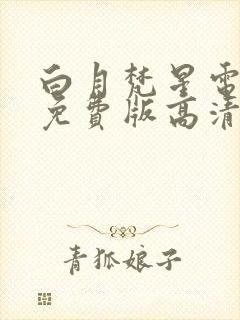 白月梵星電
免費版高清
青狐娘子